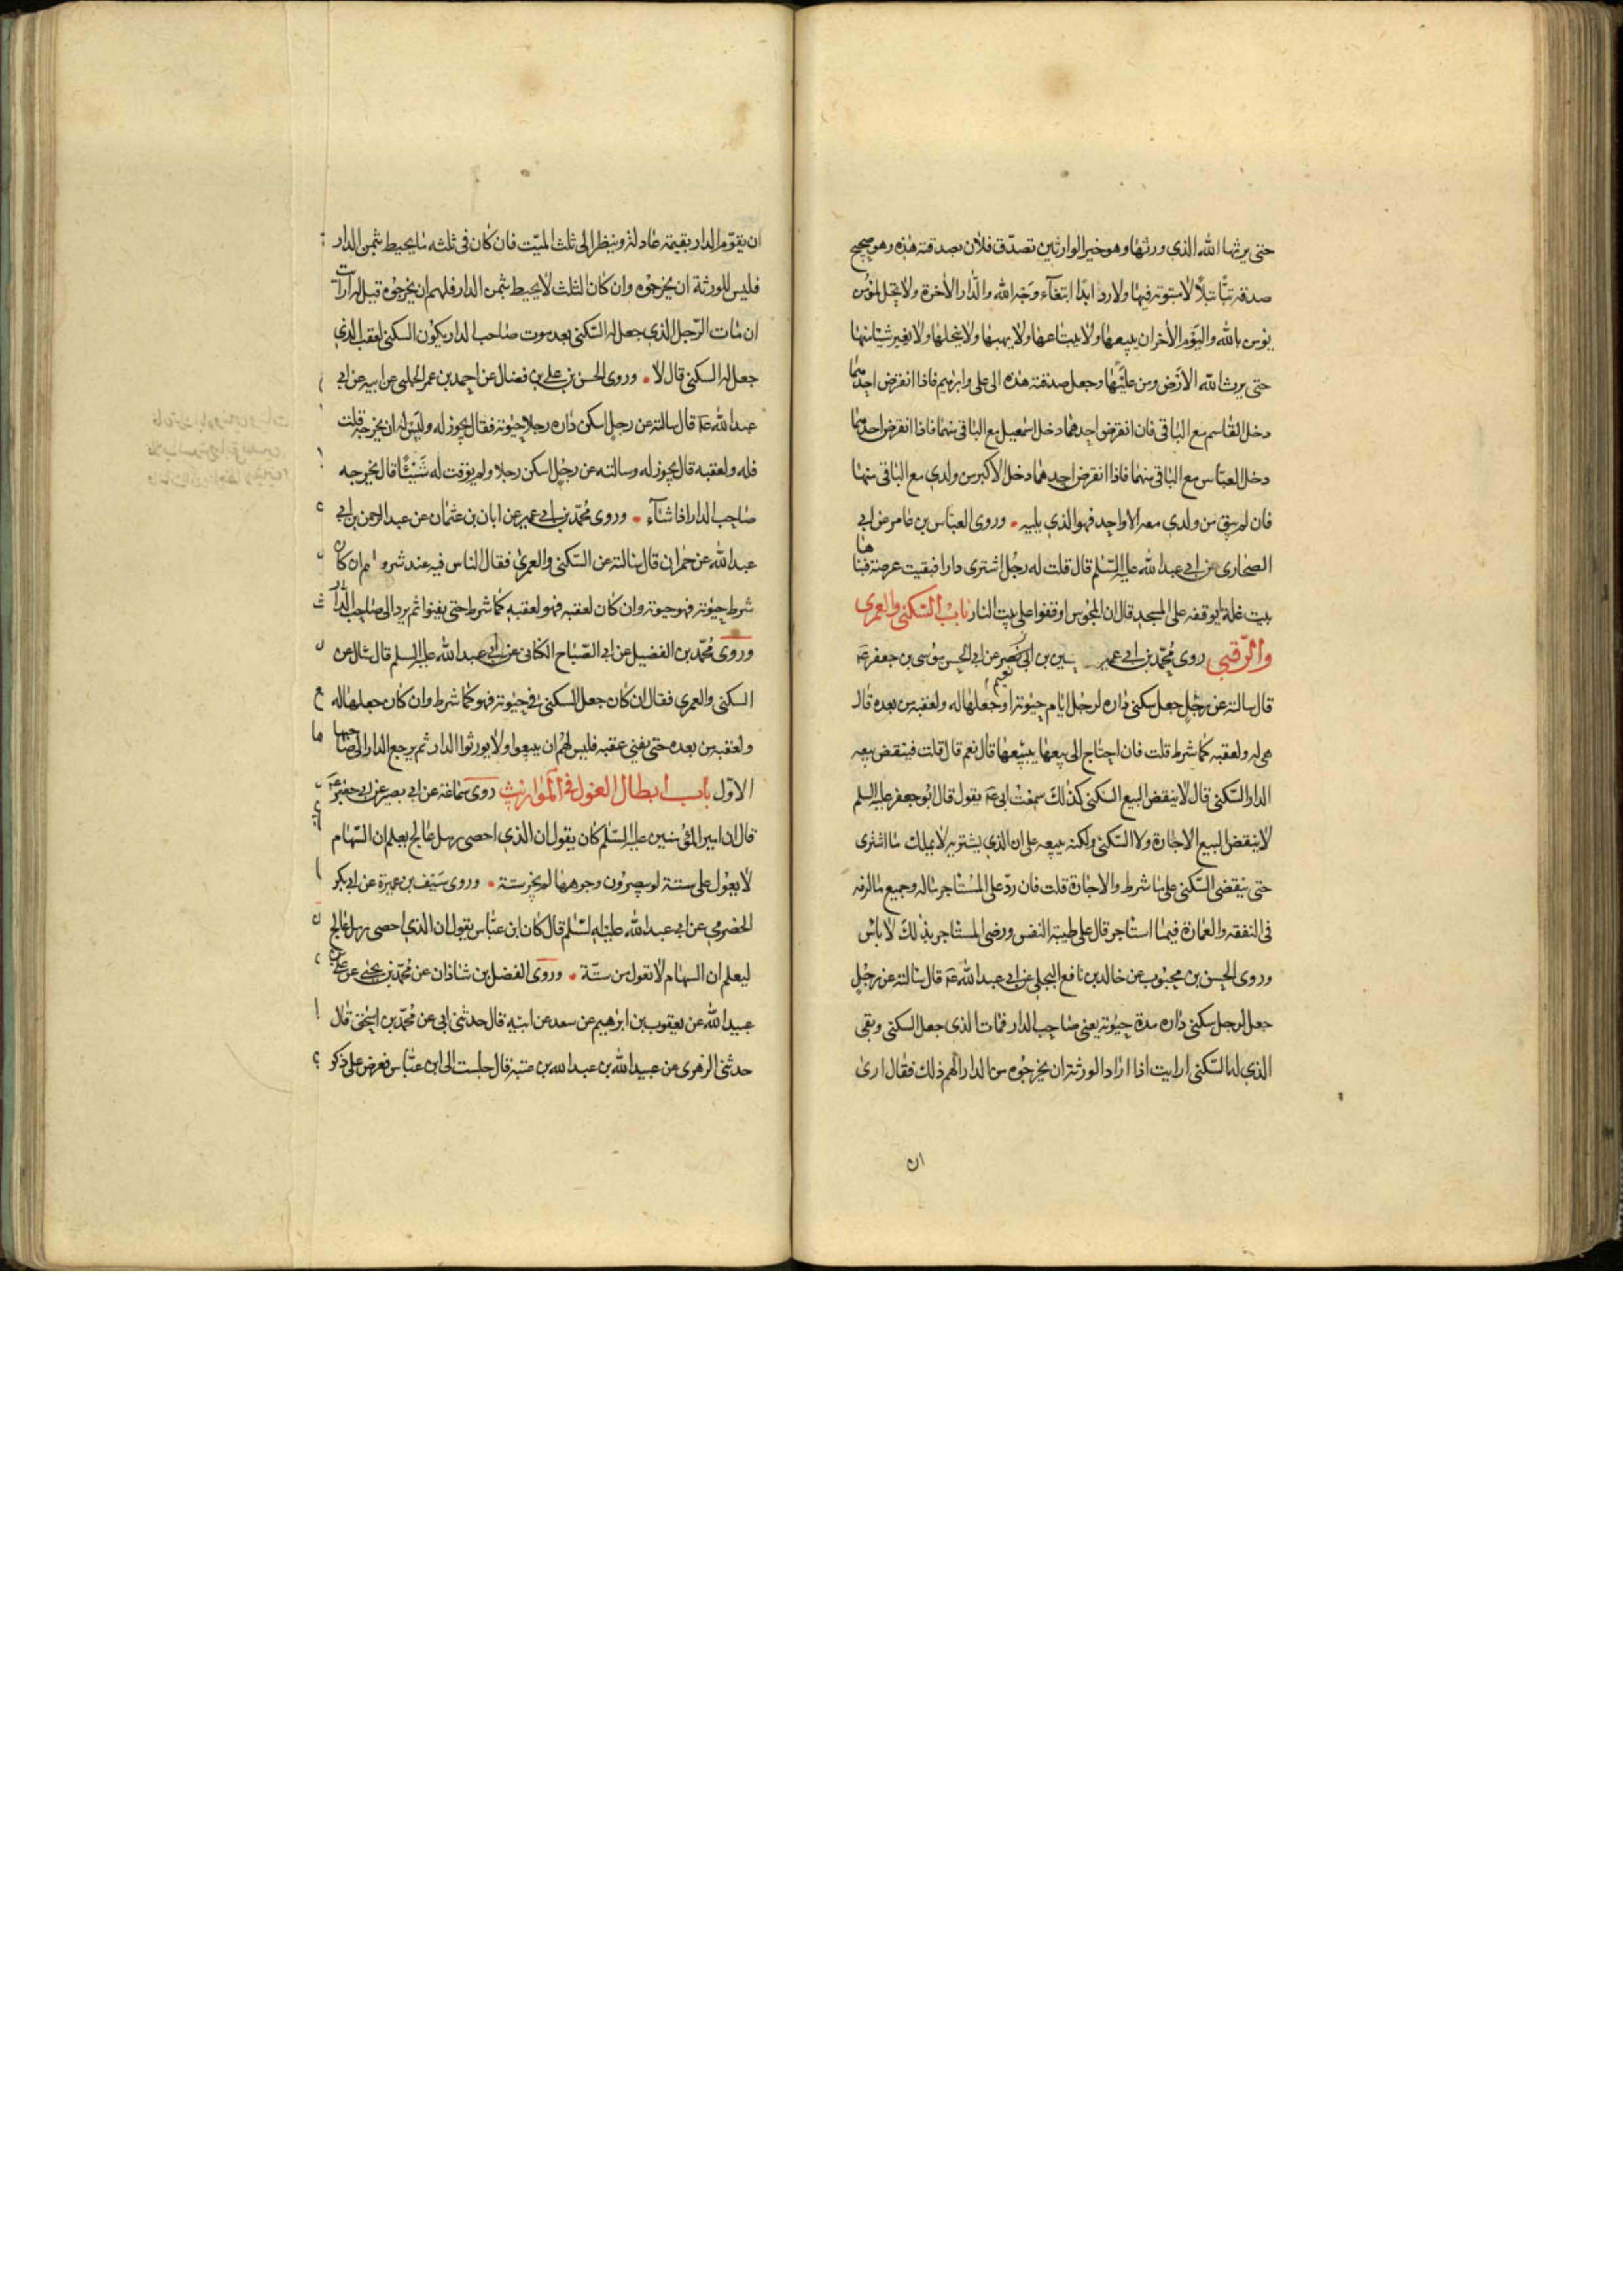 حتى يرثها الله الذي ورثها وهو خير الوارثين تصدق فلان بصدقته هذه وهو صحيح
صدقة بتا بتلا لا مبتوتة فيها ولا رد ابدا ابتغاء وجه الله والدار الاخرة ولا يحل لمؤمن
يؤمن بالله واليوم الاخر ان يبيعها ولا يبتاعها ولا يهبها ولا ينحلها ولا يغير شيئا منها
حتى يرث الله الارض ومن عليها وجعل صدقته هذه الى علي وابرهيم فاذا انقرض احدهما
دخل القاسم مع الباقي فان انقرض احدهما دخل اسمعيل مع الباقي منهما فاذا انقرض احدهما
دخل العباس مع الباقي منهما فاذا انقرض احدهما دخل الاكبر من ولدي مع الباقي منهما
فان لم يبق من ولدي معه الا واحد فهو الذي يليه وروى العباس بن عامر عن ابي
الصحاري عن ابي عبد الله عليه السلم قال قلت له رجل اشترى دارا فبقيت عرصة فبناها
بيت غلة ايوقفه على المسجد قال ان المجوس اوقفوا على بيت النار باب السكنى والعمرى
والرقبى روى محمد بن ابي عمير بن ابي عن ابي الحسن موسى بن جعفر ع
قال سالته عن رجل جعل سكنى داره لرجل ايام حيوته او جعلها له ولعقبه من بعده قال
هي له ولعقبه كما شرط قلت فان احتاج الى بيعها يبيعها قال نعم قال قلت فينقض بيعه
الدار السكنى قال لا ينقض البيع السكنى كذلك سمعت ابي ع يقول قال ابو جعفر عليه السلم
لا ينقض البيع الاجارة ولا السكنى ولكنه يبيعه على ان الذي يشتريه لا يملك ما اشترى
حتى ينقضي السكنى على ما شرط والاجارة قلت فان رد على المستاجر ماله وجميع ما لزمه
في النفقه والعمارة فيما استاجر قال على طيبة النفس ورضى المستاجر بذلك لا باس
وروى الحسن بن محبوب عن خالد بن نافع البجلي عن ابي عبد الله ع قال سالته عن رجل
جعل لرجل سكنى داره مدة حيوته يعني صاحب الدار فمات الذي جعل السكنى وبقي
الذي له السكنى ارايت اذا اراد الورثة ان يخرجوه من الدار الهم ذلك فقال ارى
ان
ان يقوم الدار بقيمة عادلة وينظر الى ثلث الميت فان كان في ثلثه ما يحيط بثمن الدار
فليس للورثة ان يخرجوه وان كان الثلث لا يحيط بثمن الدار فلهم ان يخرجوه قيل له ارايت
ان مات الرجل الذي جعل له السكنى بعد موت صاحب الدار يكون السكنى لعقب الذي
جعل له السكنى قال لا وروى الحسن بن علي بن فضال عن احمد بن عمر الحلبي عن ابيه عن ابي
عبد الله ع قال سالته عن رجل اسكن داره رجلا حيوته فقال يجوز له وليس له ان يخرجه قلت
فله ولعقبه قال يجوز له وسالته عن رجل اسكن رجلا ولم يوقت له شيئا قال يخرجه
صاحب الدار اذا شاء وروى محمد بن ابي عمير عن ابان بن عثمان عن عبد الرحمن بن ابي
عبد الله عن حمران قال سالته عن السكنى والعمرى فقال الناس فيه عند شروطهم ان كان
شرط حيوته فهو حيوته وان كان لعقبه فهو لعقبه كما شرط حتى يفنوا ثم يرد الى صاحب الدار
وروى محمد بن الفضيل عن ابي الصباح الكناني عن ابي عبد الله عليه السلم قال سئل عن
السكنى والعمرى فقال ان كان جعل السكنى في حيوته فهو كما شرط وان كان جعلها له
ولعقبه من بعده حتى يفنى عقبه فليس لهم ان يبيعوا ولا يورثوا الدار ثم يرجع الدار الى صاحبها
الاول باب ابطال العول في المواريث روى سماعة عن ابي بصير عن ابي جعفر ع
قال ان امير المؤمنين عليه السلم كان يقول ان الذي احصى رمل عالج يعلم ان السهام
لا يعول على ستة لو يبصرون وجوهها لم يجز ستة وروى سيف بن عميرة عن ابي بكر
الحضرمي عن ابي عبد الله عليه السلم قال كان ابن عباس يقول ان الذي احصى رمل عالج
ليعلم ان السهام لا تعول من ستة وروى الفضل بن شاذان عن محمد بن يحيى عن علي بن
عبيد الله عن يعقوب بن ابرهيم عن سعد عن ابيه قال حدثني ابي عن محمد بن اسحق قال
حدثني الزهري عن عبيد الله بن عبد الله بن عتبة قال جلست الى ابن عباس فعرض علي ذكر